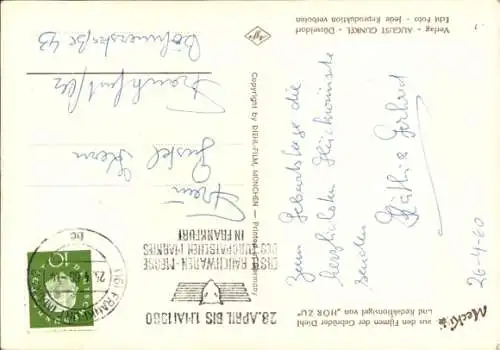 Mecki
aus den Filmen der Gebrüder Diehl
und Redaktionsigel von "HÖR ZU"
26-4-60
Zum Geburtstage die
herzlichsten Glückwünsche
senden
Käthi & Gerhard
Verlag - AUGUST GUNKEL - Düsseldorf
Echt Foto - Jede Reproduktion verboten
Copyright by DIEHL-FILM, MÜNCHEN — Printed in Germany
Agfa
28. APRIL BIS 1. MAI 1960
ERSTE RAUCHWAREN-MESSE
DES EUROPÄISCHEN MARKTES
IN FRANKFURT
(16) FRANKFURT
10
Frau
Gustel Stern
Frankfurt/M
Böhmerstraße 43